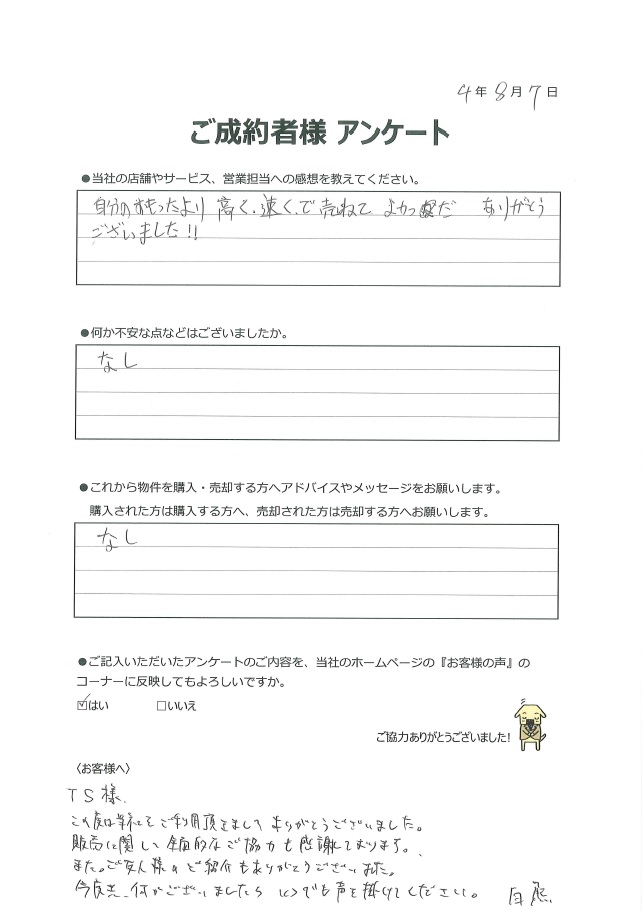 4年8月7日
ご成約者様 アンケート
●当社の店舗やサービス、営業担当への感想を教えてください。
自分のおもったより 高く、速く、で 売ねて よかっただ ありがとう
ございました!!
●何か不安な点などはございましたか。
なし
●これから物件を購入・売却する方へアドバイスやメッセージをお願いします。
購入された方は購入する方へ、売却された方は売却する方へお願いします。
なし
●ご記入いただいたアンケートのご内容を、当社のホームページの『お客様の声』の
コーナーに反映してもよろしいですか。
☑はい □いいえ
ご協力ありがとうございました!
〈お客様へ〉
TS様
この度は弊社をご利用頂きまして ありがとうございました。
販売に関して 全面的なご協力も感謝しております。
また。ご友人様のご紹介もありがとうございました。
今後共、何かございましたら いつでも声を掛けてください。